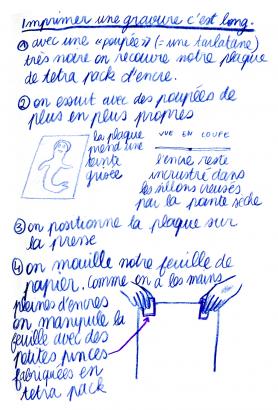 Imprimer une gravure c'est long.
① avec une «poupée» (= une tarlatane)
très noire on recouvre notre plaque
de tetra pack d'encre.
② on essuit avec des poupées de
plus en plus propres
la plaque
prend une
teinte
grisée
VUE EN COUPE
l'encre reste
incrustré dans
les sillons creusés
par la pointe sèche
③ on positionne la plaque sur
la presse
④ on mouille notre feuille de
papier. Comme on a les mains
pleines d'encres
on manipule la
feuille avec des
petites pinces
fabriquées en
tetra pack